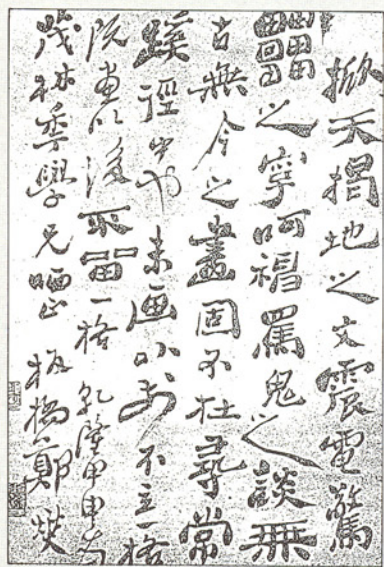 掀天揭地之文震電驚
靁之字呵神罵鬼之談無
古無今之畫固不在尋常
蹊徑中也未画以前不立一格
既畫以後不留一格 乾隆甲申
茂林年學兄哂正 板橋鄭燮